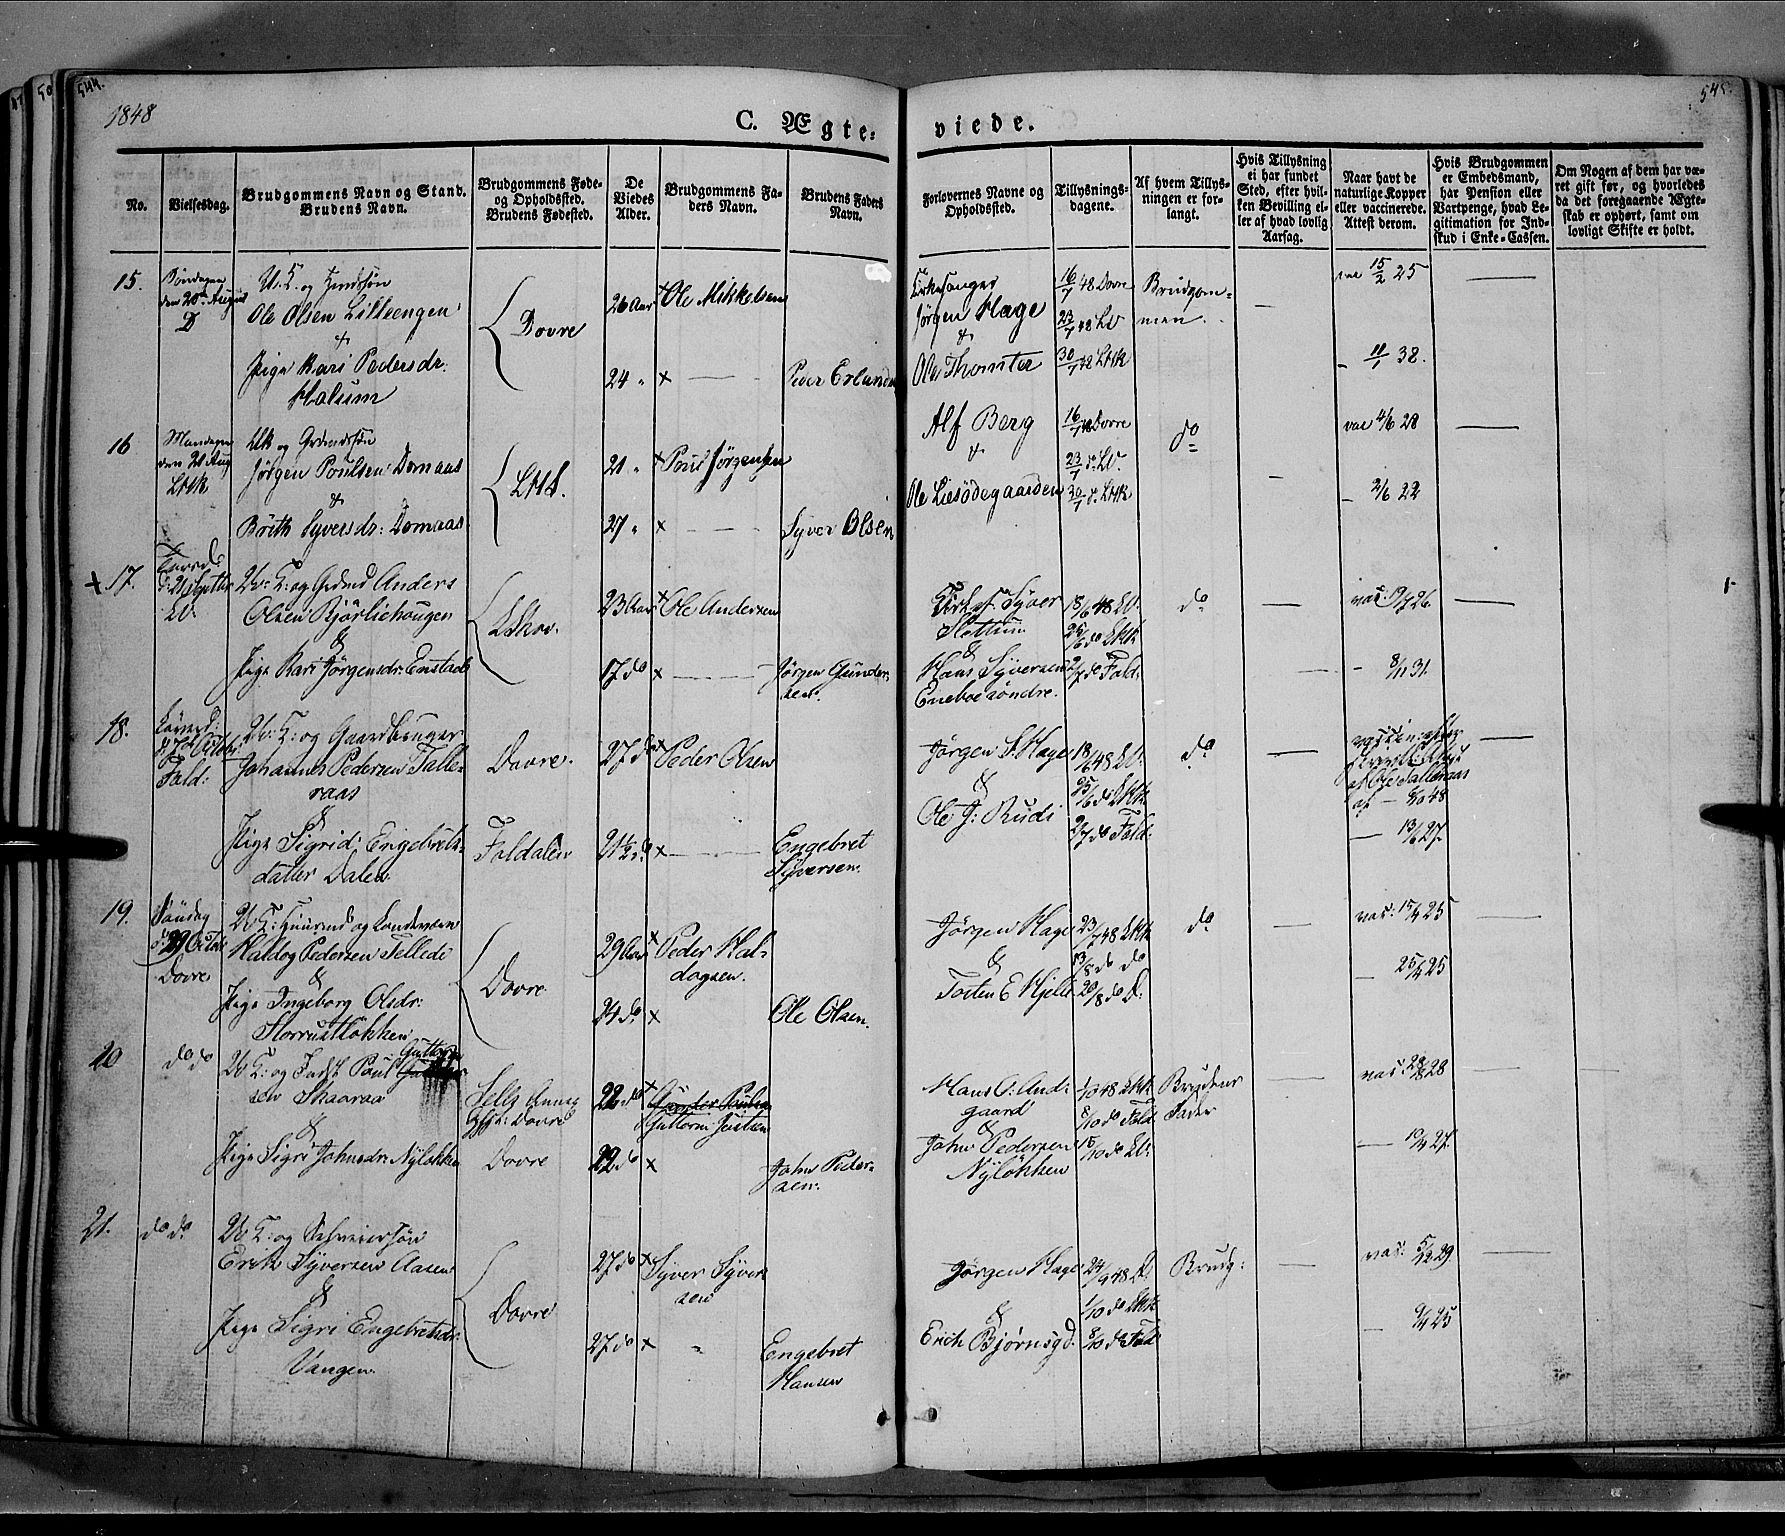 544.
545.
1848
C. Ægte-
viede.
No.
Vielsesdag.
Brudgommens Navn og Stand.
Brudens Navn.
Brudgommens Føde-
og Opholdssted.
Brudens Fødested.
De
Viedes
Alder.
Brudgommens Fa-
ders Navn.
Brudens Faders
Navn.
Forlovernes Navne og
Opholdssted.
Tillysnings-
dagene.
Af hvem Tillys-
ningen er for-
langt.
Hvis Tillysning
ei har fundet
Sted, efter hvil-
ken Bevilling el-
ler af hvad lovlig
Aarsag.
Naar havt de
naturlige Kopper
eller vaccinerede.
Attest derom.
Hvis Brudgommen
er Embedsmand,
har Pension eller
Vartpenge, hvad Le-
gitimation for Ind-
skud i Enke-Cassen.
Om Nogen af dem har væ-
ret gift før, og hvorledes
da det foregaaende Ægte-
skab er ophørt, samt om
lovligt Skifte er holdt.
15.
Søndagen
den 20de August
D
U. K. og
Ole Olsen Lilleengen
&
Pige Kari Pedersdr:
Halum
Dovre
26 Aar
24 "
Ole Mikkelsen
Peder Erlands
Kirkesanger
Jørgen Hage
&
Ole Thomter
16/7 48 Dovre
23/7 48 LV
30/7 48 LHk
Brudgom-
men.
vac 15/2 25
- 11/7 38.
16
Mandagen
den 21 Aug
LHk
Uk og Grdmdssøn
Jørgen Poulsen Domaas
&
Brith Syversdr: Domaas
21 "
27 "
Poul Jørgensen
Syver Olsen
Alf Berg
&
Ole Liesødegaarden
16/7 Dovre
23/7 do LV.
30/7 do LHk
do
vac 4/6 28
- 2/6 22
+ 17.
LV.
U: K: og Grdmd Anders
Olsen Bjørliehougen
&
Pige Kari Jørgensdr: Enstad
23 Aar
17 do
Ole Andersen
Jørgen Gunder-
sen.
Syver
Slottum
&
Hans Syversen
Eneboe søndre.
18/6 48 LV.
25/6 do LHk
2/7 do Fold:
do
vac: 19/7 26.
- 8/11 31.
1-
18.
Fold:
U: K: og Gaardbruger
Johannes Pedersen Talle-
raas
&
Pige Sigrid: Engebrets-
datter Dalen
Dovre.
Foldalen
27 do
21 1/2 do
Peder Olsen
Engebret
Syversen.
Jørgen S. Hage
&
Ole J: Rudi
18/6 48 LV.
25/6 do LHk
2/7 do Fold:
do
af Ole Talleraas
af - 6/10 48
- 13/6 27.
19.
Søndag
d: 29 Octbr
Dovre
Haldog Pedersen Tellede
&
Pige Ingeborg Olsdr:
Storrustløkken
Dovre
29 Aar
24 do
Peder Hal-
dogsen.
Ole Olsen.
Jørgen Hage
&
Tosten E Hjelle
23/7 48 LHk
13/8 do do
20/8 do D.
do
vac: 15/7 25
- 25/7 25
20
do do
U: K: og Indst Poul Guttorm-
sen Skaaraa
&
Pige Sigri Johnsdr: Nyløkken
Sells Annex
Dovre
Dovre
22 do
Guttorm Jostsen
John Peder-
sen.
Hans O: And-
gaard
&
John Pedersen
Nyløkken
1/10 48 LHk
8/10 do Fold.
15/10 do LV.
Brudens
Fader
vac: 29/8 28
- 10/7 27.
21.
do do
U: K: og
Erik Syversen Aasen
&
Pige Sigri Engebretsdr:
Vangen.
Dovre
27 do
27 do
Syver Syver-
sen
Engebret
Hansen
Jørgen Hage
&
Erich Bjørnsgd.
24/9 48 D.
1/10 do LHk
8/10 do Fold
Brudg:
vac: 5/12 29.
- 9/7 25